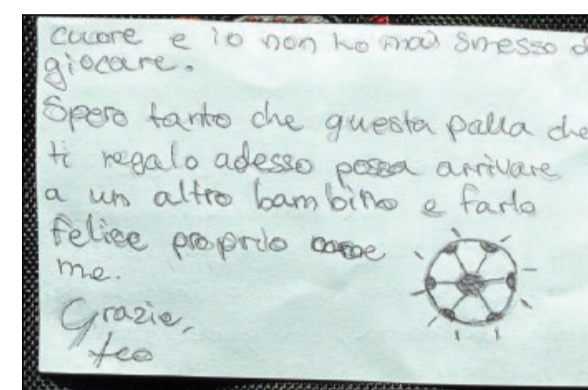 cuore e io non ho mai smesso di
giocare.
Spero tanto che questa palla che
ti regalo adesso possa arrivare
a un altro bambino e farlo
felice proprio come
me.
Grazie,
teo